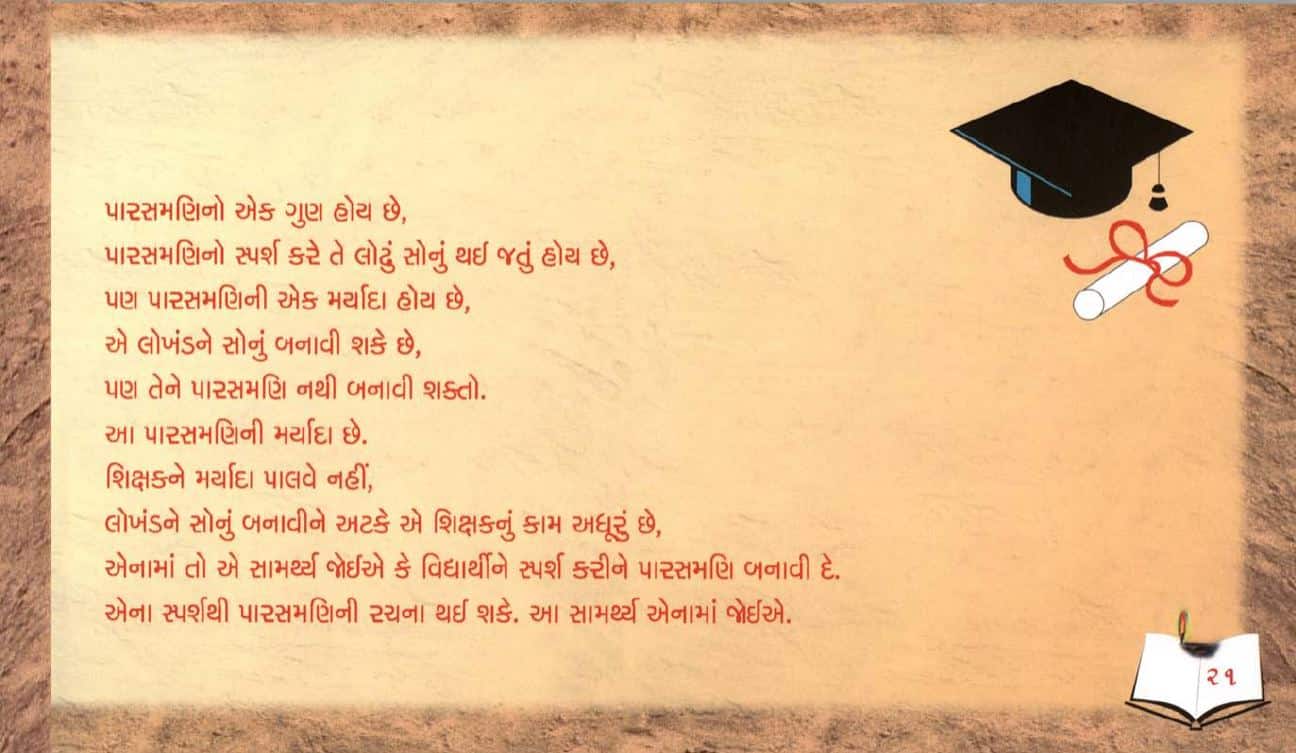 પારસમણિનો એક ગુણ હોય છે,
પારસમણિનો સ્પર્શ કરે તે લોઢું સોનું થઈ જતું હોય છે,
પણ પારસમણિની એક મર્યાદા હોય છે,
એ લોખંડને સોનું બનાવી શકે છે,
પણ તેને પારસમણિ નથી બનાવી શક્તો.
આ પારસમણિની મર્યાદા છે.
શિક્ષકને મર્યાદા પાલવે નહીં,
લોખંડને સોનું બનાવીને અટકે એ શિક્ષકનું કામ અધૂરું છે,
એનામાં તો એ સામર્થ્ય જોઈએ કે વિદ્યાર્થીને સ્પર્શ કરીને પારસમણિ બનાવી દે.
એના સ્પર્શથી પારસમણિની રચના થઈ શકે. આ સામર્થ્ય એનામાં જોઈએ.
૨૧